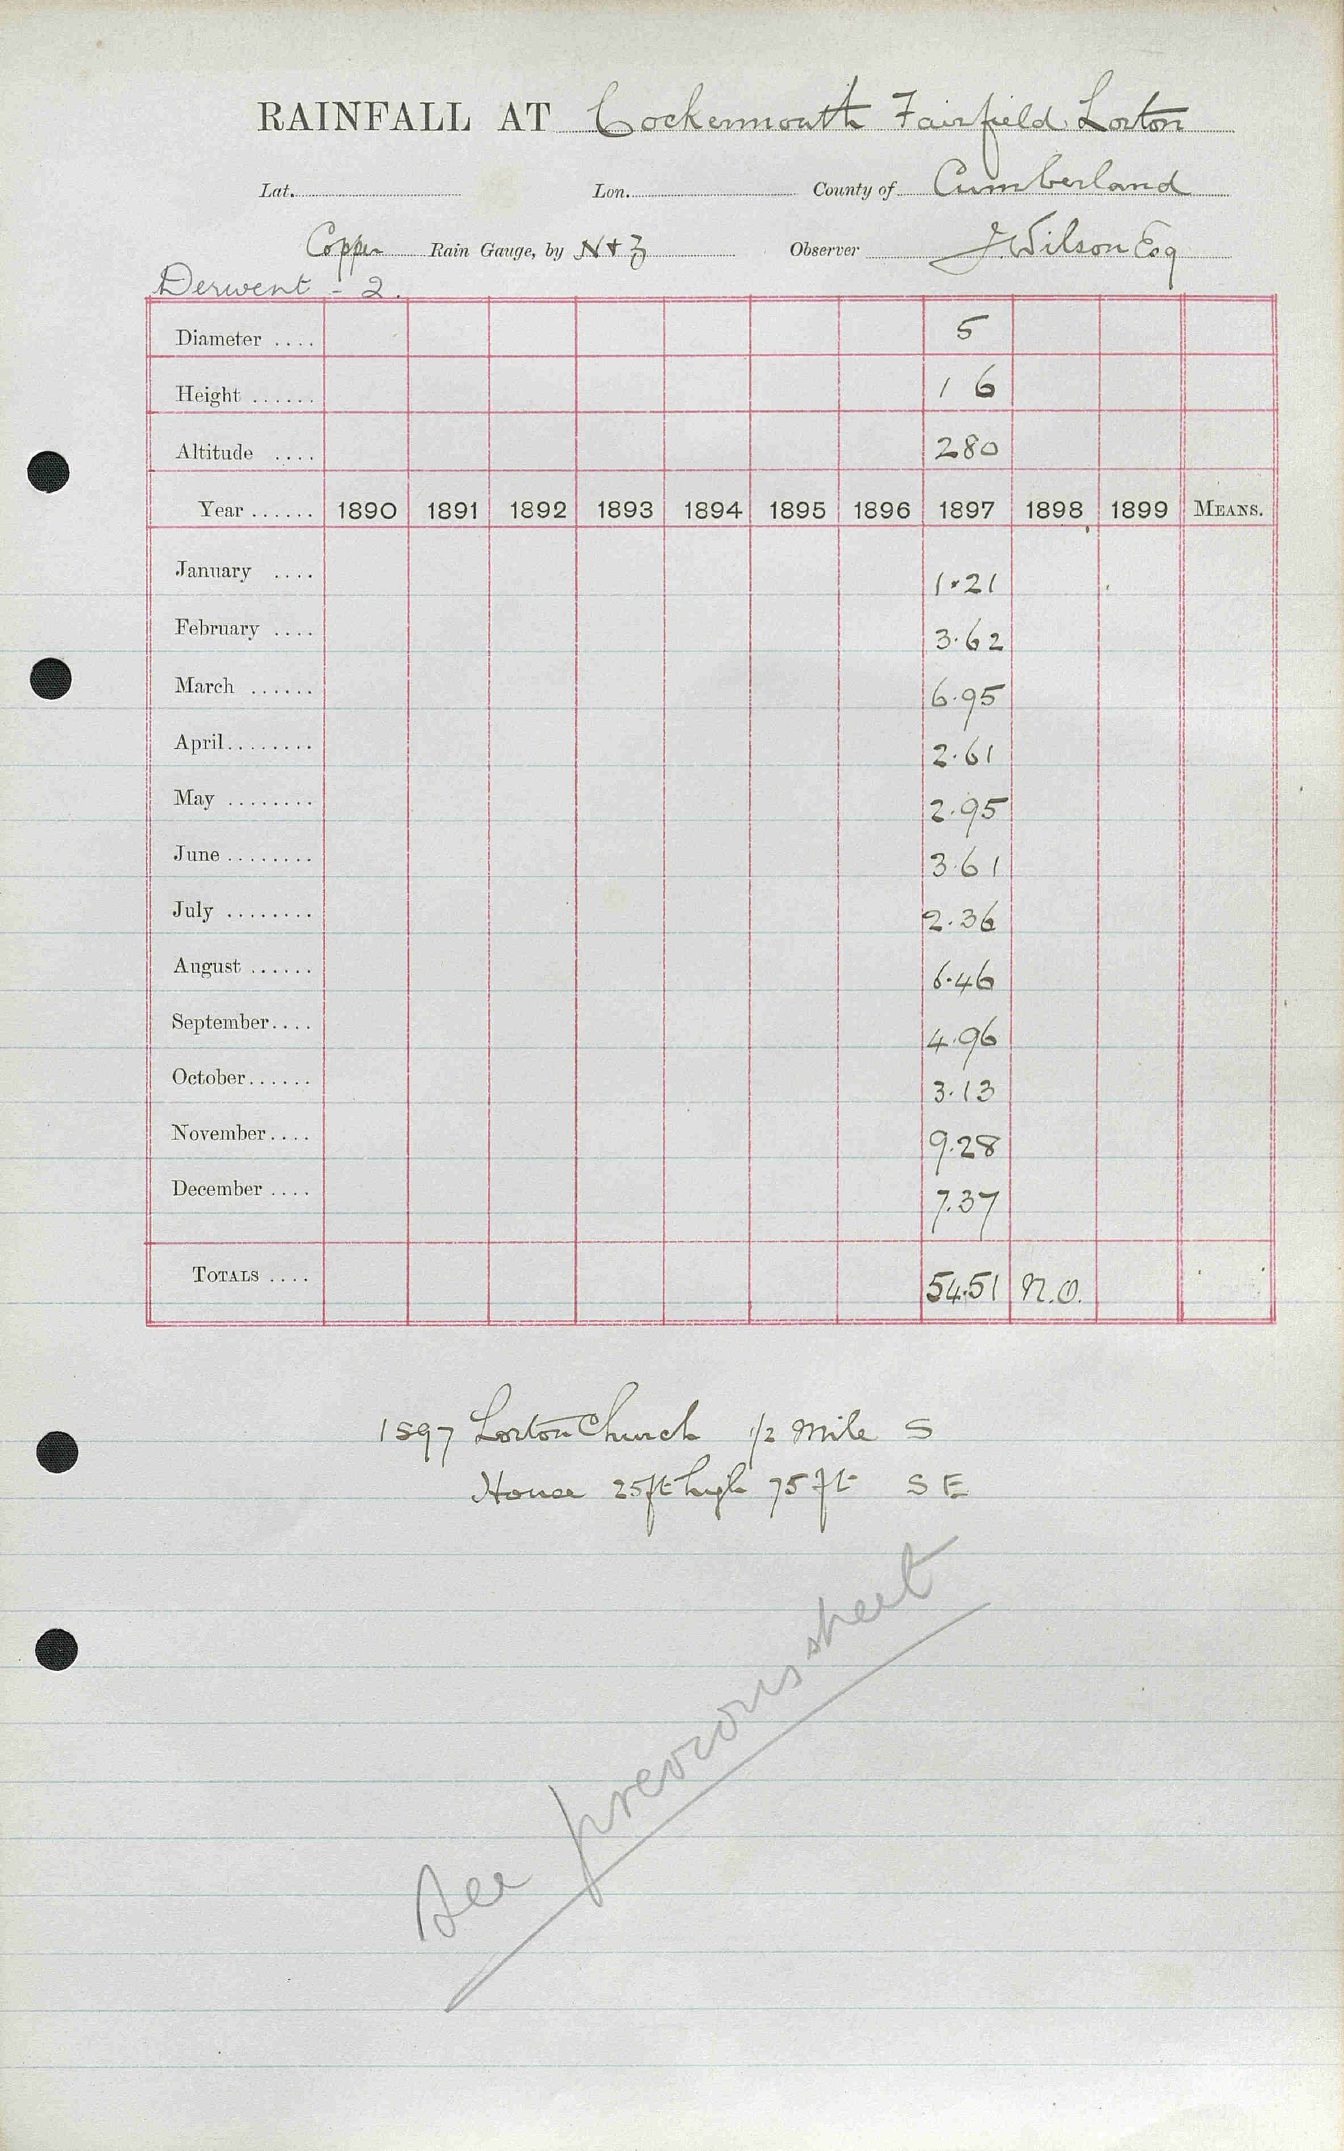 RAINFALL AT Cockermouth Fairfield Lorton
Lat. Lon. County of Cumberland
Copper Rain Gauge, by N & Z Observer J. Wilson Esq
Derwent - 2.
Diameter .... 5
Height ...... 1 6
Altitude .... 280
Year ...... 1890 1891 1892 1893 1894 1895 1896 1897 1898 1899 MEANS.
January .... 1.21
February .... 3.62
March ...... 6.95
April........ 2.61
May ........ 2.95
June ........ 3.61
July ........ 2.36
August ...... 6.46
September.... 4.96
October...... 3.13
November.... 9.28
December .... 7.37
TOTALS .... 54.51 N.O.
1897 Lorton Church 1/2 Mile S
House 25ft high 75ft SE
See previous sheet